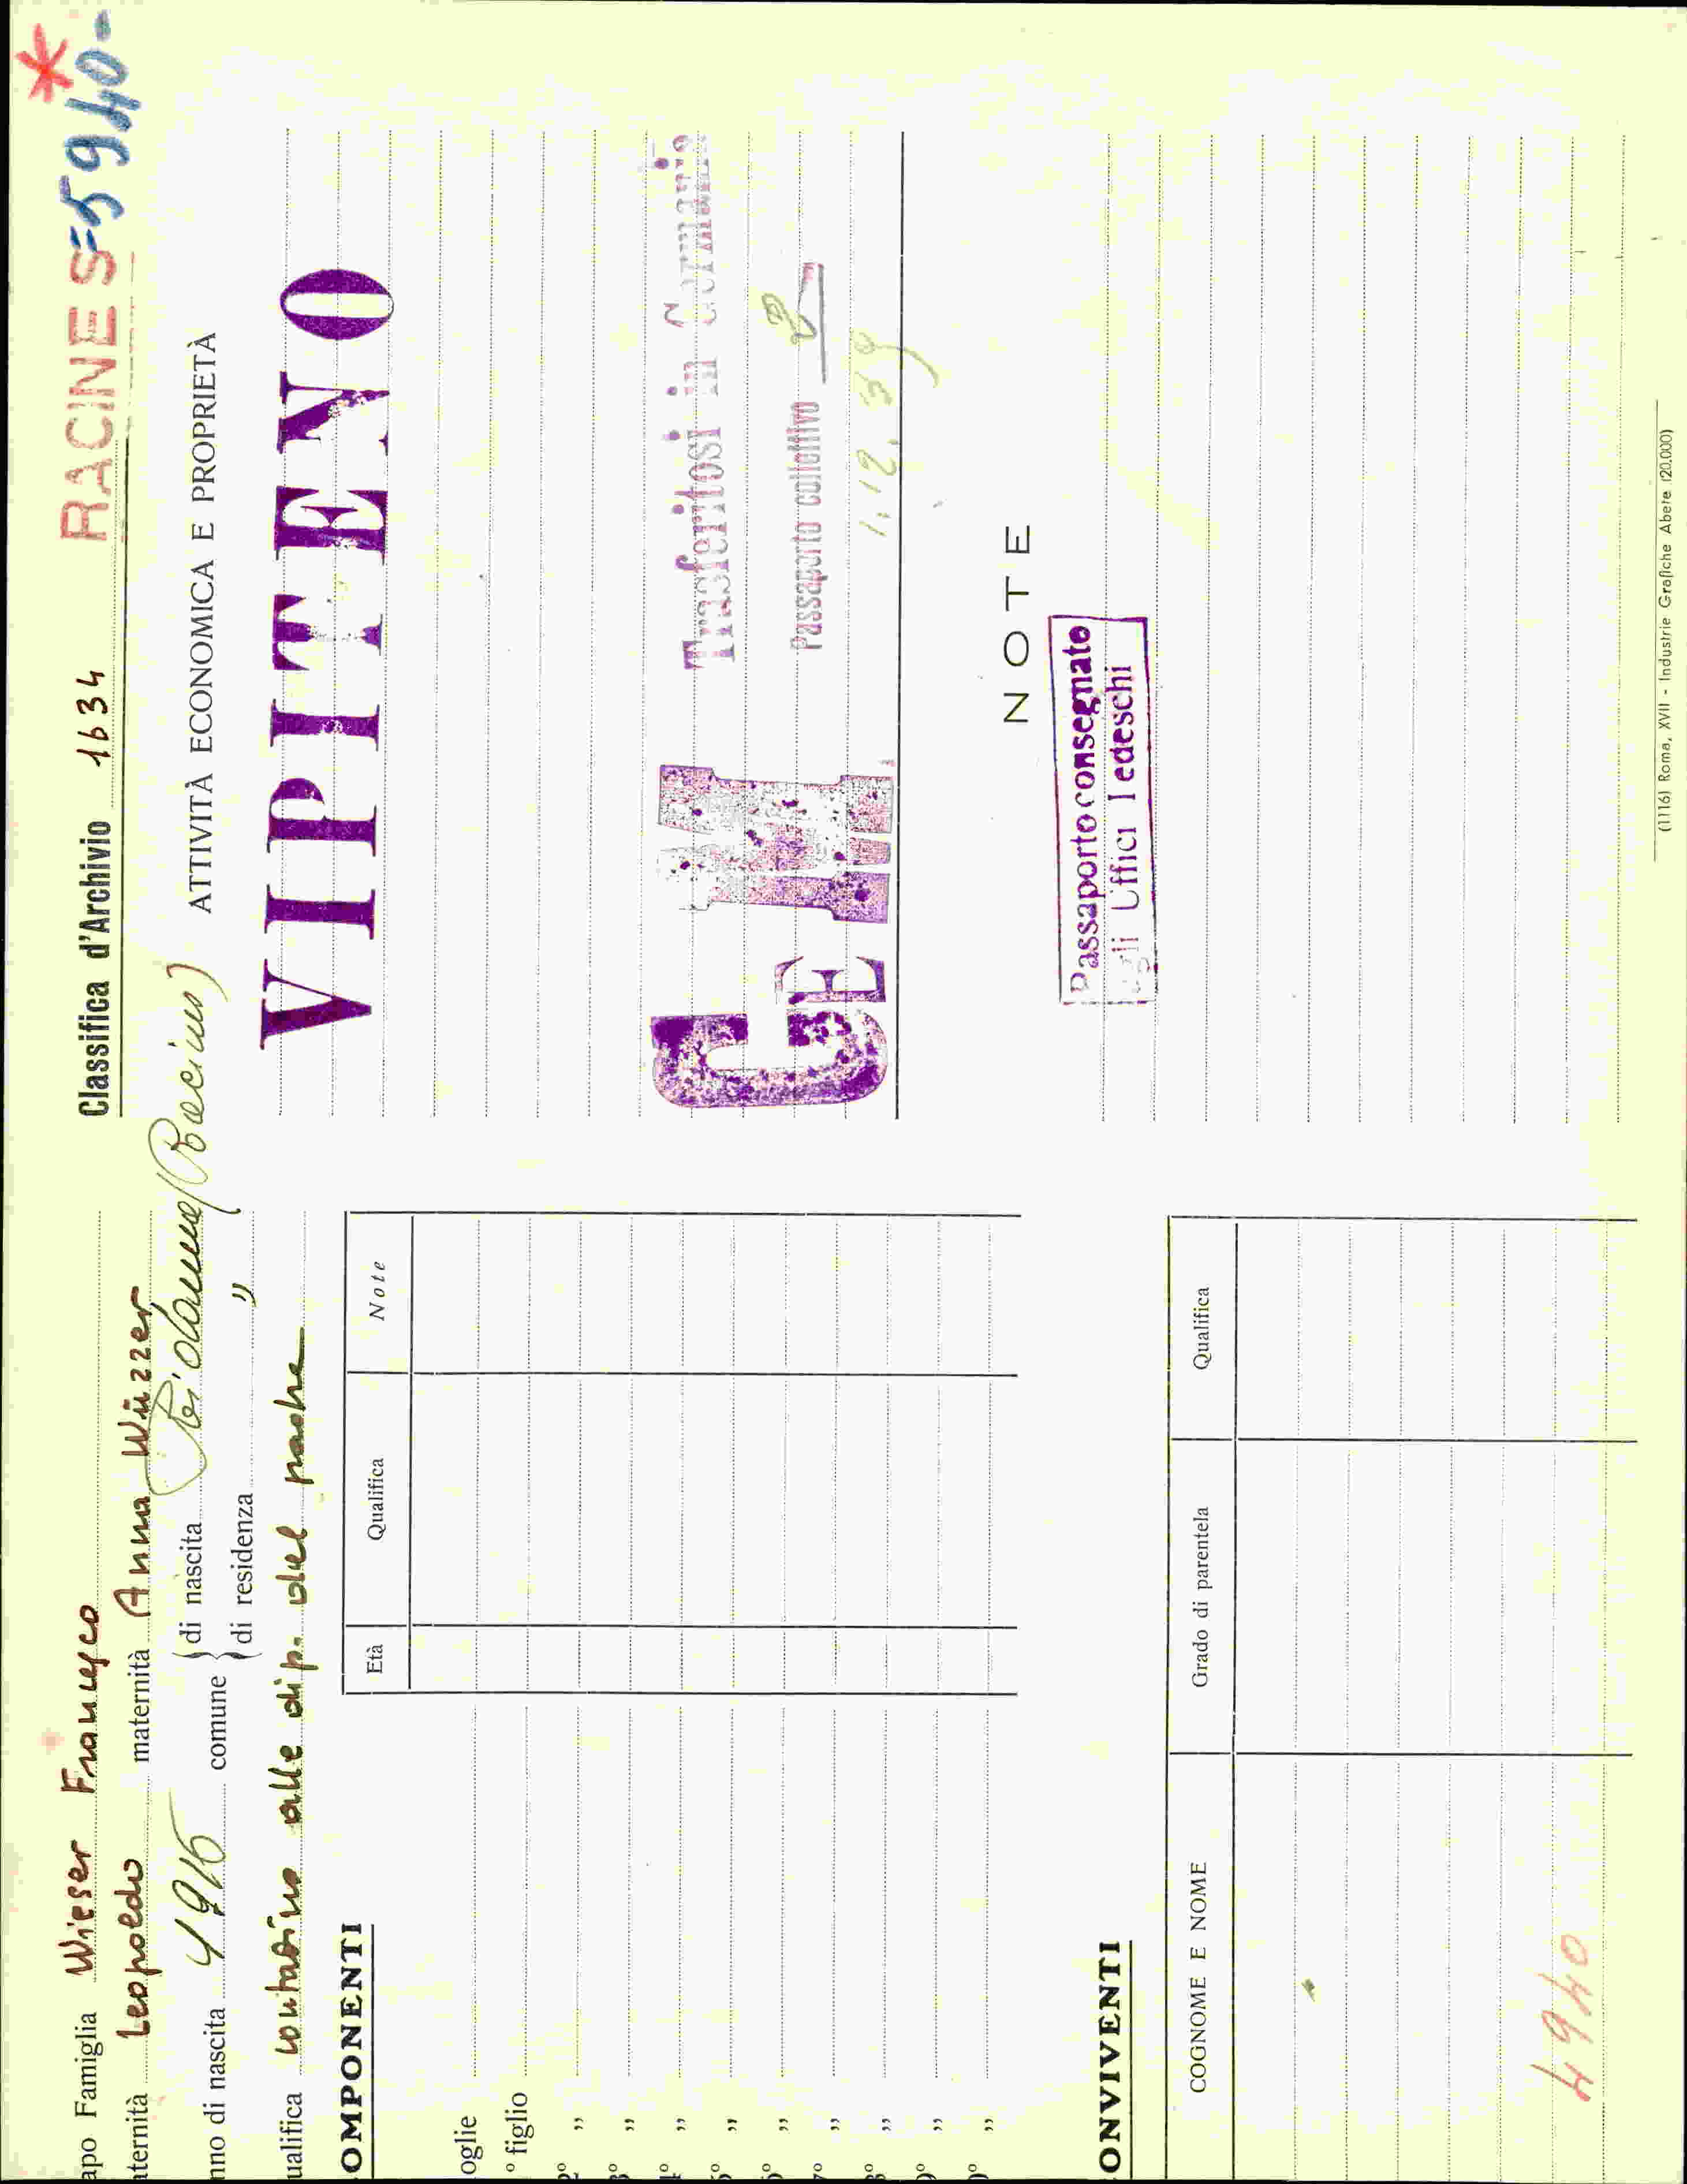 apo Famiglia Wieser Francesco
aternità Leopoldo maternità Anna Wüzzer
nno di nascita 1916 comune { di nascita (Racines)
di residenza "
ualifica contadino alle dip. del padre
OMPONENTI
Età Qualifica Note
oglie
° figlio
2° "
3° "
4° "
5° "
6° "
7° "
8° "
9° "
0° "
ONVIVENTI
COGNOME E NOME Grado di parentela Qualifica
4940
Classifica d'Archivio 1634 RACINES=5940-
*
ATTIVITÀ ECONOMICA E PROPRIETÀ
VIPITENO
GE M
Trasferitosi in Germania
Passaporto collettivo
1.12.39
NOTE
Passaporto consegnato
agli Uffici Tedeschi
(1116) Roma, XVII - Industrie Grafiche Abete (20.000)